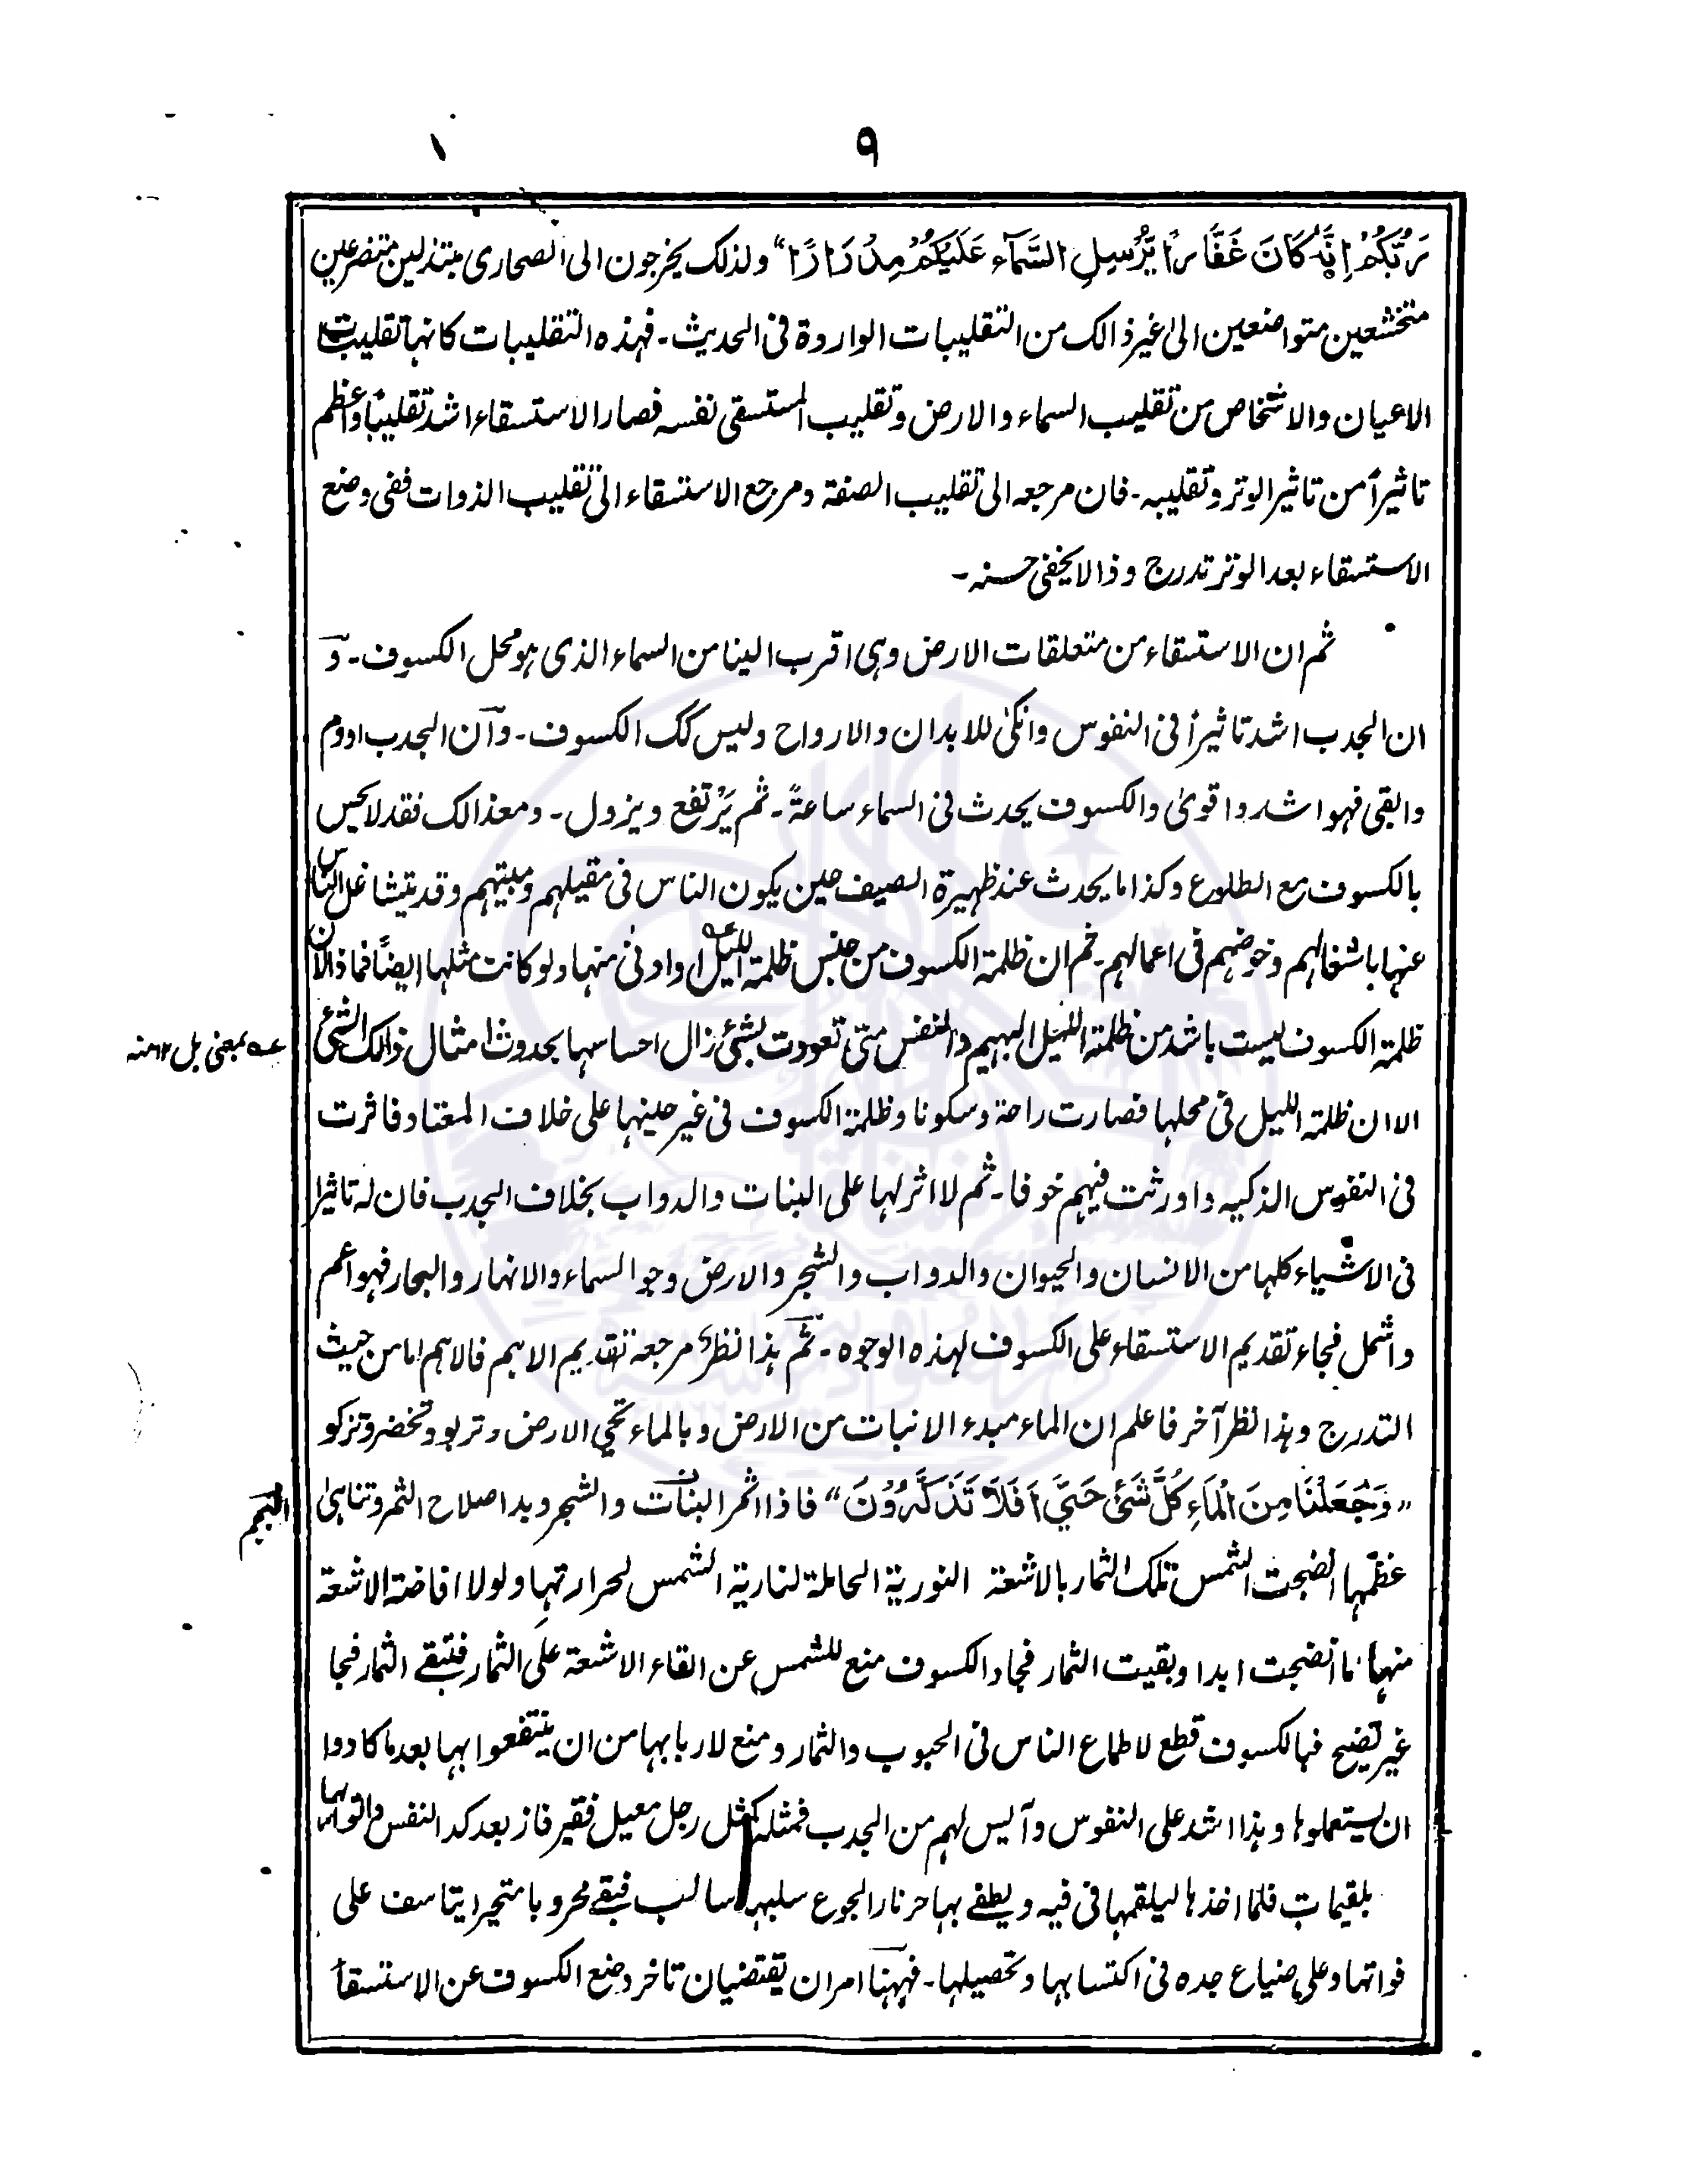 ۹
۱
رَبَّكُمْ اِنَّهٗ كَانَ غَفَّارًا يُّرْسِلِ السَّمَآءَ عَلَيْكُمْ مِدْرَارًا“ ولذلك يخرجون الى الصحارى متبذلين متضرعين
متخشعين متواضعين الىٰ غير ذالك من التقليبات الواردة فى الحديث۔ فهذه التقليبات كانها تقليبات
الاعيان والاشخاص من تقليب السماء والارض وتقليب المستسقى نفسه فصار الاستسقاء اشد تقليبًا واعظم
تاثيراً من تاثير الوتر وتقليبه۔ فان مرجعه الى تقليب الصفة ومرجع الاستسقاء الى تقليب الذوات ففى وضع
الاستسقاء بعد الوتر تدرج وذا لا يخفى حسنه۔
ثم ان الاستسقاء من متعلقات الارض وهى اقرب الينا من السماء الذى هو محل الكسوف۔ و
ان الجدب اشد تاثيراً فى النفوس وانكىٰ للابدان والارواح وليس كك الكسوف۔ وآن الجدب ادوم
وابقى فهو اشد واقوىٰ والكسوف يحدث فى السماء ساعةً۔ ثم يَرْتفع ويزول۔ ومعذالك فقد لا يحس
بالكسوف مع الطلوع وكذا ما يحدث عند ظهيرة الصيف حين يكون الناس فى مقيلهم ومبيتهم وقد يتشاغل الناس
عنها باشغالهم وخوضهم فى اعمالهم۔ ثم ان ظلمة الكسوف من جنس ظلمة الليل او ادنىٰ منها ولو كانت مثلها ايضًا فماذا لان
ظلمة الكسوف ليست باشد من ظلمة الليل البهيم والنفس متى تعودت بشئ زال احساسها بحدوث امثال ذالك الشئ
عه بمعنى بل ۱۲ منه
الا ان ظلمة الليل فى محلها فصارت راحة وسكونا وظلمة الكسوف فى غير حينها على خلاف المعتاد فاثرت
فى النفوس الذكيه واورثت فيهم خوفا۔ ثم لا اثر لها على النبات والدواب بخلاف الجدب فان له تاثيرا
فى الاشياء كلها من الانسان والحيوان والدواب والشجر والارض وجو السماء والانهار والبحار فهو اعم
واشمل فجاء تقديم الاستسقاء على الكسوف لهذه الوجوه۔ ثم هذا نظرٌ مرجعه تقديم الاهم فالاهم اما من حيث
التدرج وهذا نظر آخر فاعلم ان الماء مبدء الانبات من الارض وبالماء تحي الارض وتربو وتخضر وتزكو
”وَجَعَلْنَا مِنَ الْمَآءِ كُلَّ شَئْ حَيٍّ اَفَلَا تَذَكَّرُوْنَ“ فاذا اثمر النبات والشجر وبدا صلاح الثمر وتناهىٰ
النجم
عظمها انضجت الشمس تلك الثمار بالاشعة النورية الحاملة لنارية الشمس لحرارتها ولولا افاضة الاشعة
منها ما انضجت ابدا وبقيت الثمار فجا والكسوف منع للشمس عن القاء الاشعة على الثمار فتبقے الثمار فجا
غير نضيج فبالكسوف قطع لاطماع الناس فى الحبوب والثمار ومنع لاربابها من ان ينتفعوا بها بعد ما كادوا
ان يستعملوها وهذا اشد على النفوس وآليس لهم من الجدب فمثله كمثل رجل معيل فقير فاز بعد كد النفس
بلقيمات فلما اخذها ليلقمها فى فيه ويطفے بها حر نار الجوع سلبها سالب فبقے محروبا متحيرا يتاسف على
فواتها وعلى ضياع جده فى اكتسابها وتحصيلها۔ فههنا امران يقتضيان تاخر وضع الكسوف عن الاستسقا